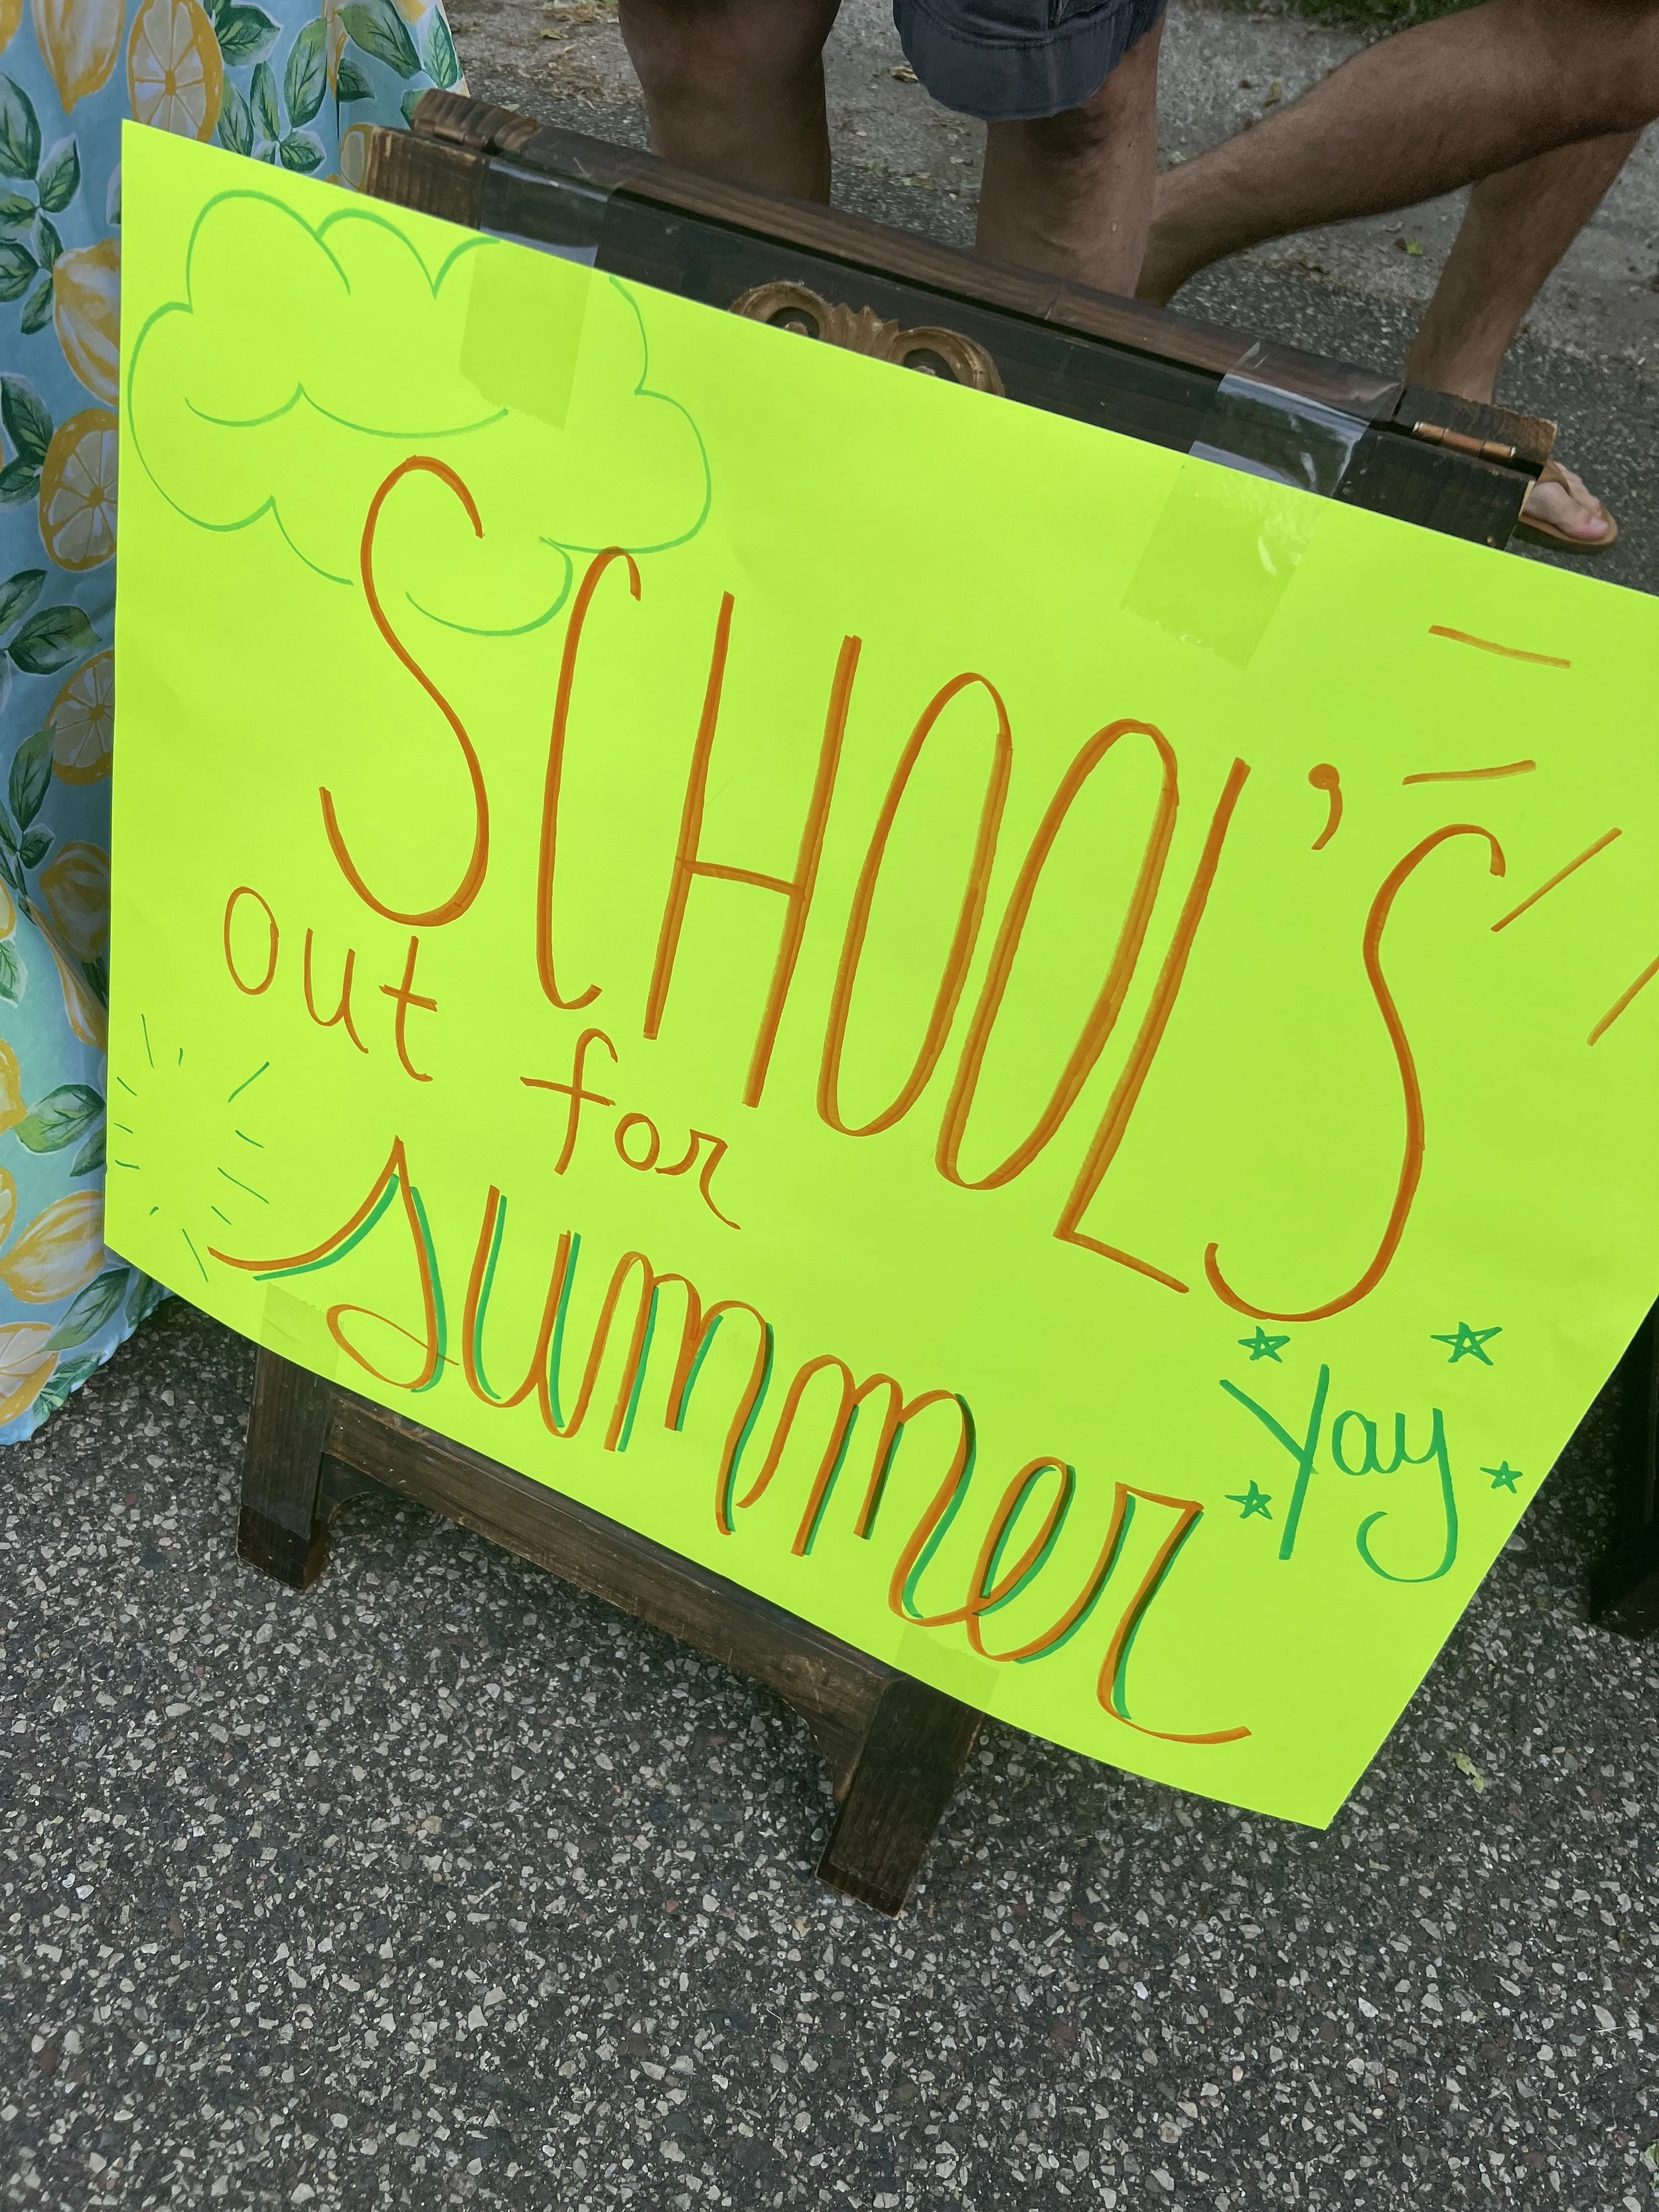 SCHOOL'S
out for
summer
Yay